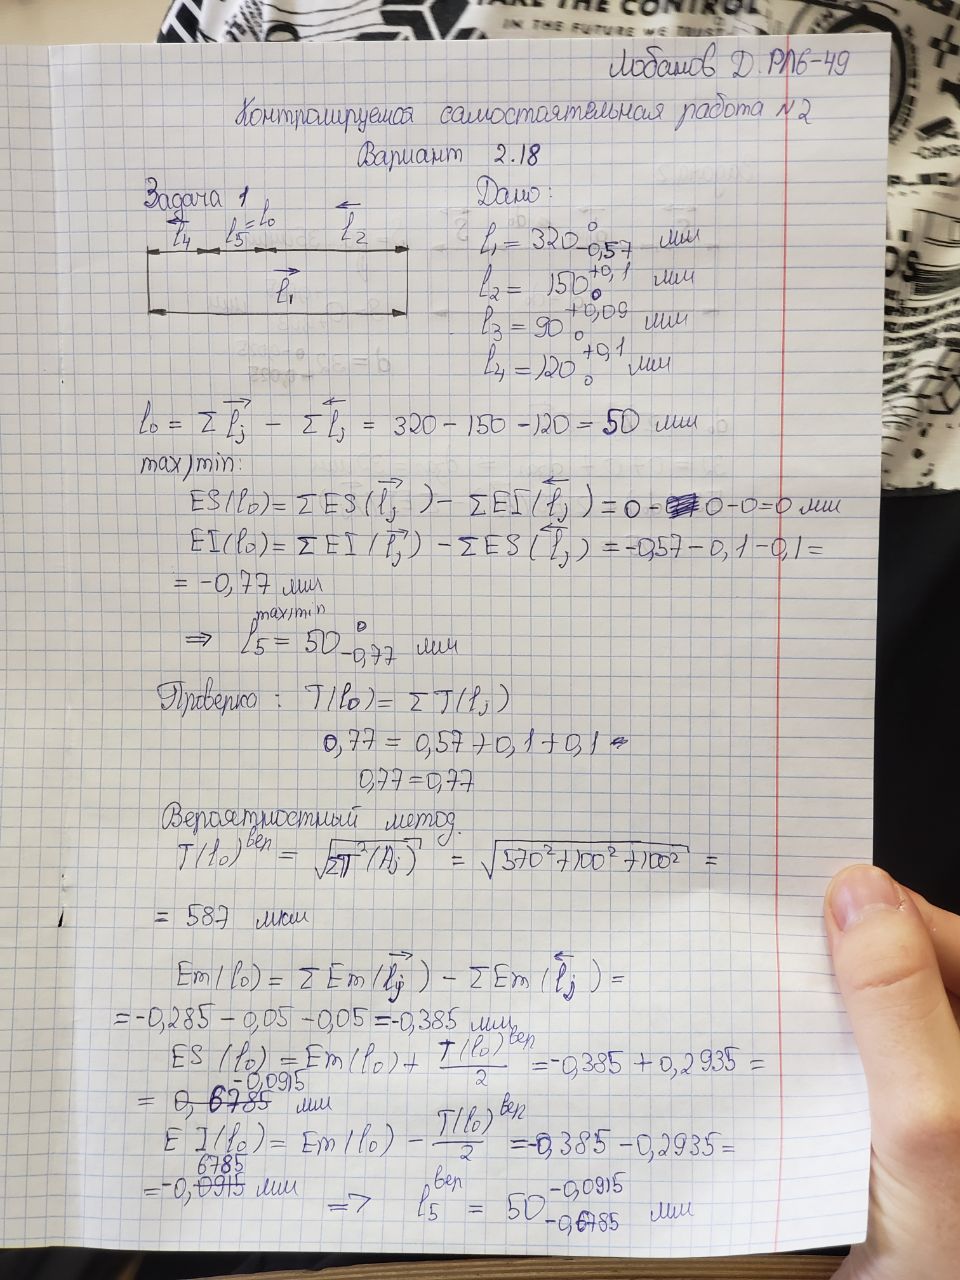 TAKE THE CONTROL
IN THE FUTURE WE TRUST
Лобанов Д. РЛ6-49
Контролируемая самостоятельная работа №2
Вариант 2.18
Задача 1
Дано:
l₄ l₅ = l₀ l₂
l₁
l₁ = 320 0 -0,57 мм
l₂ = 150 +0,1 0 мм
l₃ = 90 +0,09 0 мм
l₄ = 120 +0,1 0 мм
l₀ = Σ l⃗ⱼ − Σ l⃖ⱼ = 320 − 150 − 120 = 50 мм
max/min:
ES(l₀) = Σ ES(l⃗ⱼ) − Σ EI(l⃖ⱼ) = 0 − 0 − 0 = 0 мм
EI(l₀) = Σ EI(l⃗ⱼ) − Σ ES(l⃖ⱼ) = −0,57 − 0,1 − 0,1 =
= −0,77 мм
⇒ l₅ max/min = 50 0 −0,77 мм
Проверка: T(l₀) = Σ T(lⱼ)
0,77 = 0,57 + 0,1 + 0,1
0,77 = 0,77
Вероятностный метод.
T(l₀)вер = √ΣT²(Aⱼ) = √570² + 100² + 100² =
= 587 мкм
Em(l₀) = Σ Em(l⃗ⱼ) − Σ Em(l⃖ⱼ) =
= −0,285 − 0,05 − 0,05 = −0,385 мм
ES(l₀) = Em(l₀) + T(l₀)вер / 2 = −0,385 + 0,2935 =
−0,0915
= 0,6785 мм
EI(l₀) = Em(l₀) − T(l₀)вер / 2 = −0,385 − 0,2935 =
6785
= −0,0915 мм
⇒ l₅ вер = 50 −0,0915 −0,6785 мм